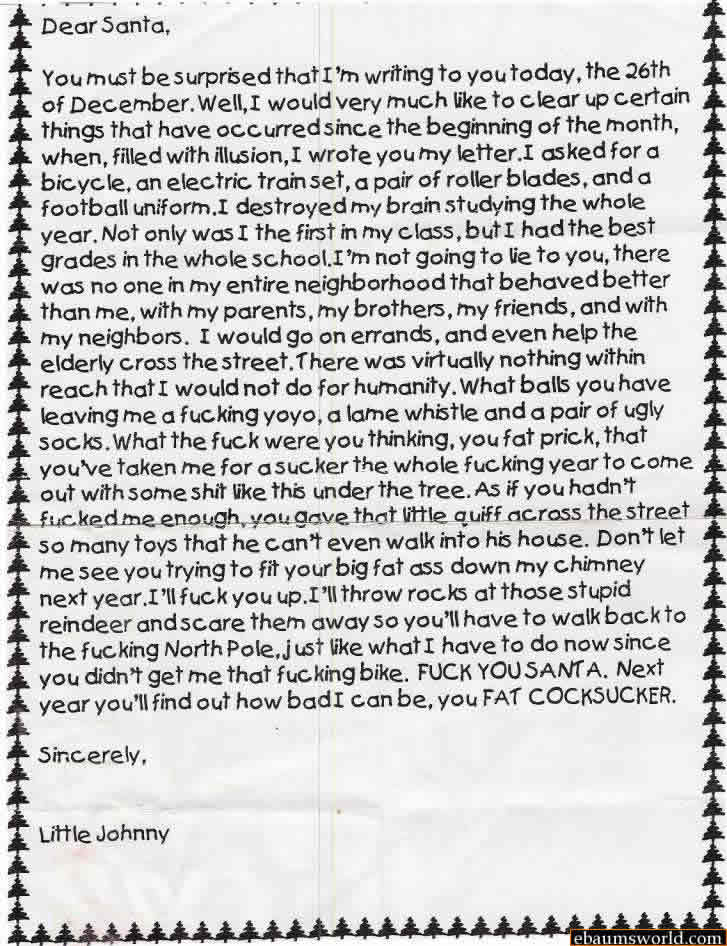 Dear Santa,
You must be surprised that I'm writing to you today, the 26th
of December. Well, I would very much like to clear up certain
things that have occurred since the beginning of the month,
when, filled with illusion, I wrote you my letter. I asked for a
bicycle, an electric train set, a pair of roller blades, and a
football uniform. I destroyed my brain studying the whole
year. Not only was I the first in my class, but I had the best
grades in the whole school. I'm not going to lie to you, there
was no one in my entire neighborhood that behaved better
than me, with my parents, my brothers, my friends, and with
my neighbors. I would go on errands, and even help the
elderly cross the street. There was virtually nothing within
reach that I would not do for humanity. What balls you have
leaving me a fucking yoyo, a lame whistle and a pair of ugly
socks. What the fuck were you thinking, you fat prick, that
you've taken me for a sucker the whole fucking year to come
out with some shit like this under the tree. As if you hadn't
fucked me enough, you gave that little quiff across the street
so many toys that he can't even walk into his house. Don't let
me see you trying to fit your big fat ass down my chimney
next year. I'll fuck you up. I'll throw rocks at those stupid
reindeer and scare them away so you'll have to walk back to
the fucking North Pole, just like what I have to do now since
you didn't get me that fucking bike. FUCK YOU SANTA. Next
year you'll find out how bad I can be, you FAT COCKSUCKER.
Sincerely,
Little Johnny
ebaumsworld.com